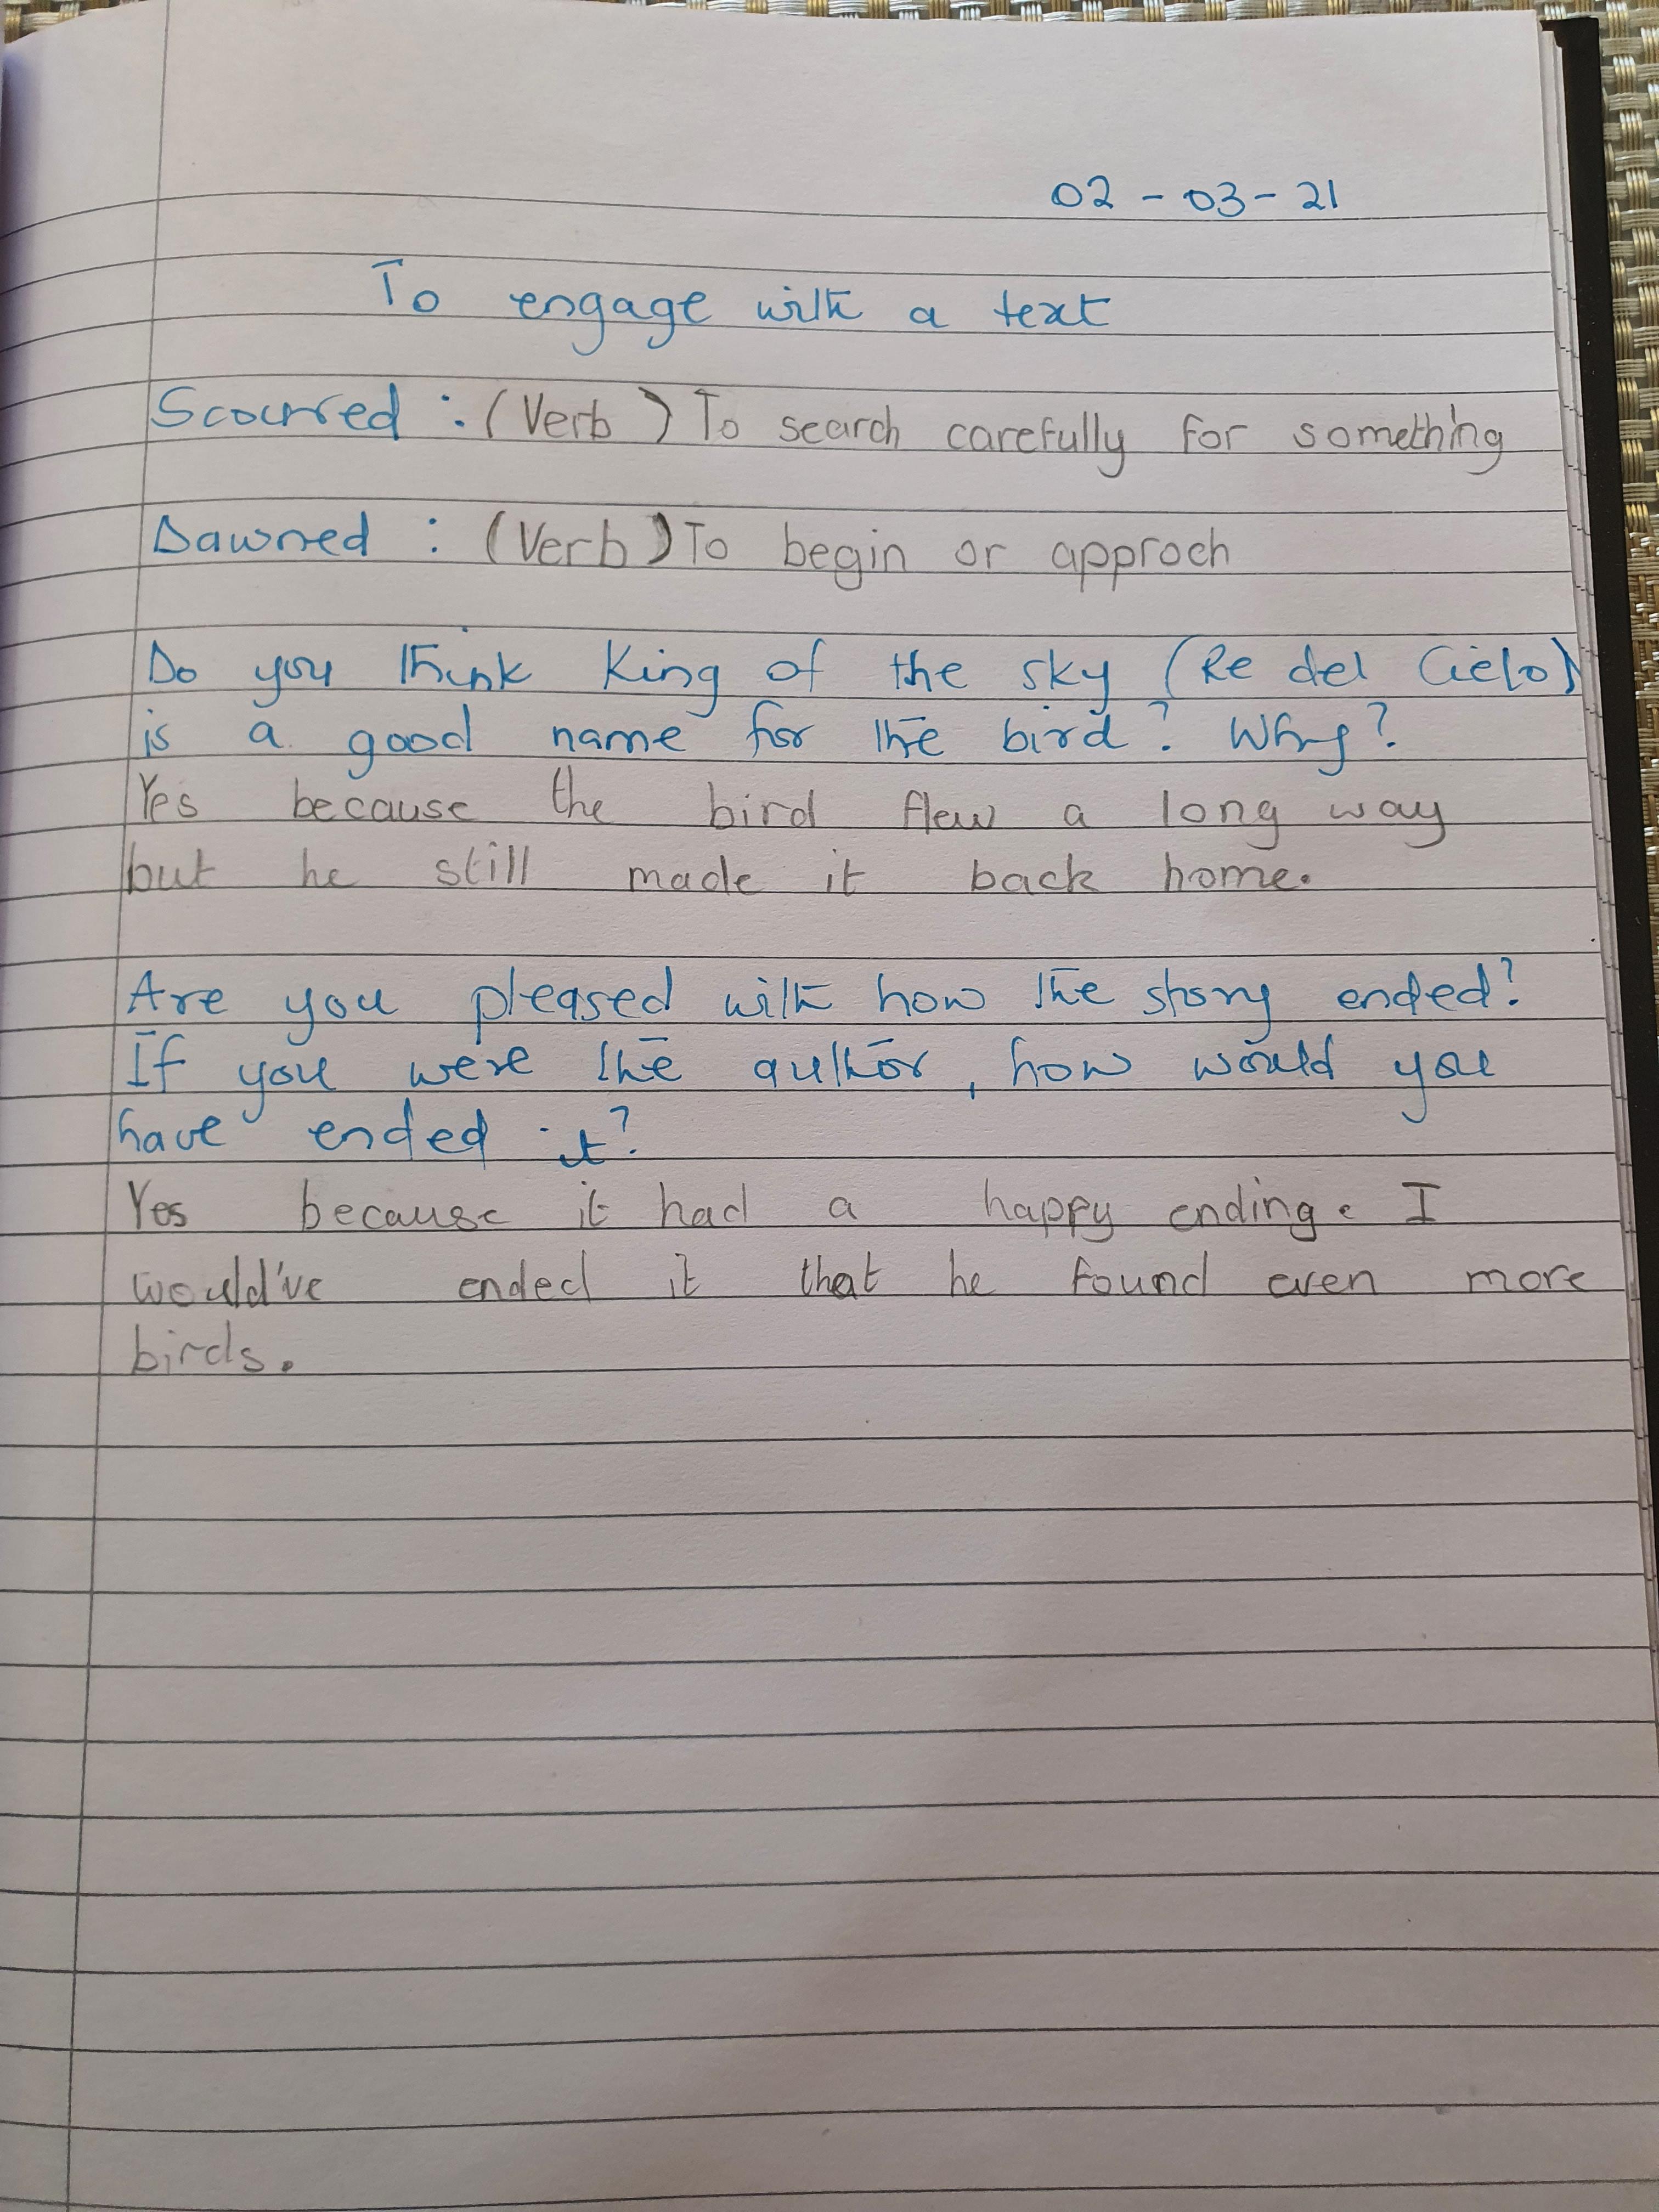 02 - 03 - 21
To engage with a text
Scoured : (Verb) To search carefully for something
Dawned : (Verb) To begin or approch
Do you think King of the sky (Re del Cielo)
is a good name for the bird? Why?
Yes because the bird flew a long way
but he still made it back home.
Are you pleased with how the story ended?
If you were the author, how would you
have ended it?
Yes because it had a happy ending. I
would've ended it that he found even more
birds.